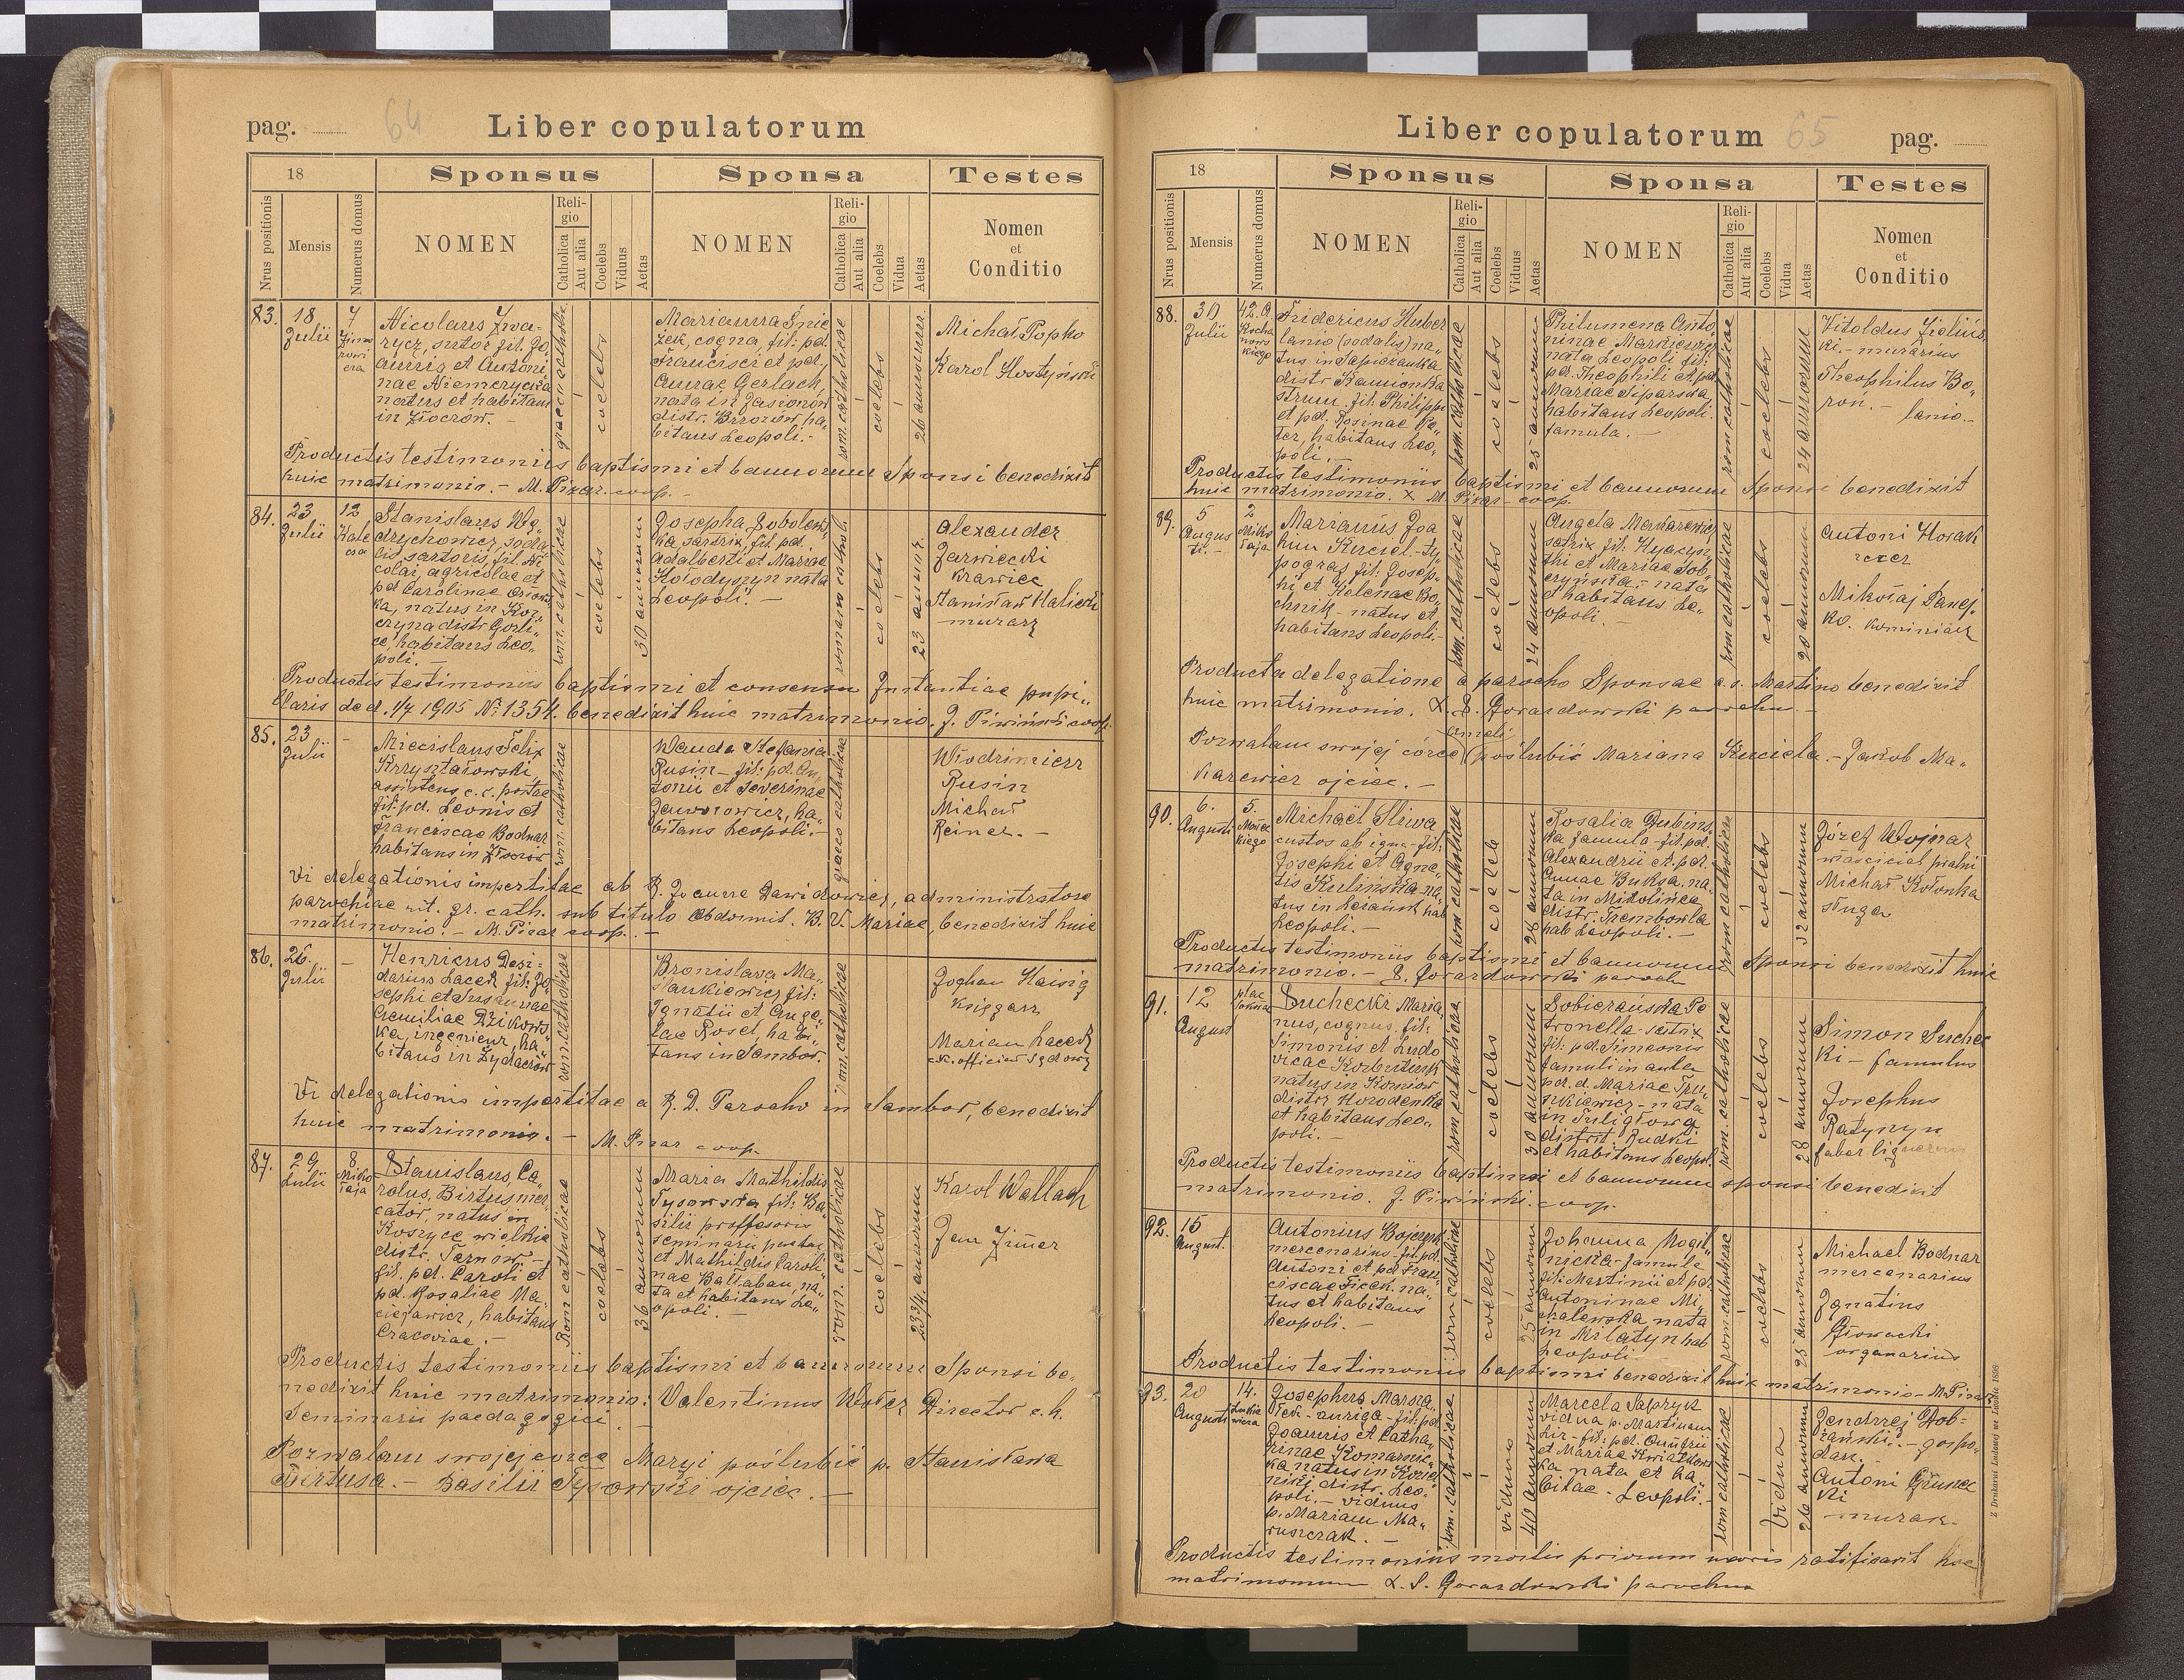 pag. 64 Liber copulatorum
18 Sponsus Sponsa Testes
Nrus positionis Mensis Numerus domus NOMEN Religio Catholica Aut alia Coelebs Viduus Aetas NOMEN Religio Catholica Aut alia Coelebs Vidua Aetas Nomen et Conditio
83. 18 Julii 7
Nicolaus
sutor fil. Jo
annis et Antoni
nae
natus et habitans
in Złoczów. -
graeco catholic
coelebs
Marianna
cogna, fil: pd.
Francisci et pd.
Annae Gerlach,
nata in Jasionów
distr. Brzozów, ha
bitans Leopoli. -
rom. catholicae
coelebs
26 annorum
Michał Popko
Karol Hostyński
Productis testimoniis baptismi et bannorum Sponsi benedixit
huic matrimonio. - M. Pizar. coop. -
84. 23 Julii 12
Stanislaus Wę
drychowicz, soda
lis sartoris, fil. Ni
colai, agricolae et
pd Carolinae
ka, natus in
distr Gorli
ce, habitans Leo
poli. -
rom. catholicae
coelebs
30 annorum
Josepha Sobolew
ka sartrix, fil. pd.
Adalberti et Mariae
Hołodyszyn nata
Leopoli. -
romano cathol.
coelebs
23 annor.
Alexander
Zarwiecki
Krawiec
Stanisław Halicki
murarz
Productis testimoniis baptismi et consensu Instantiae pupi
llaris de d. 1/7 1905 Nr: 1354. benedixit huic matrimonio. J. Piwiński coop.
85. 23 Julii -
Miecislaus Felix
Krzyształowski
assistens c. r. postae
fil. pd. Leonis et
Franciscae Bodnar
habitans in
rom. catholicae
Wanda Stefania
Rusin - fil: pd. An
tonii et Severinae
ha
bitans Leopoli. -
graeco catholicae
Włodzimierz
Rusin
Michał
Reiner. -
Vi delegationis impertitae ab R. Joanne Dawidowicz, administratore
parochiae rit. gr. cath. sub titulo Abdormit. B. V. Mariae, benedixit huic
matrimonio. - M. Pizar coop. -
86. 26. Julii -
Henricus Desi
derius Lacek fil: Jo
sephi et Susannae
Aemiliae Dzikows
ka, ingenieur, ha
bitans in Żydaczów
rom. catholicae
Bronislava Ma
słankiewicz fil:
Ignatii et Ange
lae Rosel, habi
tans in Sambor.
rom. catholicae
Joghan Haisig
Księgarz
Marian Lacek
Vi delegationis impertitae a R. D. Parocho in Sambor, benedixit
huic matrimonio. - M. Pizar coop.
87. 29 Julii 8 Miko łaja
Stanislaus, Ca
rolus, Birtus mer
cator, natus in
Koszyce wielkie
distr. Tarnów -
fil. pd. Caroli et
pd. Rosaliae Ma
ciejowicz, habitans
Cracoviae. -
Rom catholicae
coelebs
36 annorum
Maria Mathildis
Tysowska fil: Ba
silii proffesoris
seminarii
et Mathildis Caroli
nae Bałłaban, na
ta et habitans Le
opoli. -
rom. catholicae
coelebs
23 3/4 annorum
Karol Wallach
Jan Zimer
Productis testimoniis baptismi et bannorum Sponsi be
nedixit huic matrimonio: Valentinus Wołcz Director c. k.
Seminarii paedagogici. -
Pozwalam swojej córce Maryi poślubić p. Stanisława
Birtusa. - Basilii Tysowski ojciec. -
Liber copulatorum 65 pag.
18 Sponsus Sponsa Testes
Nrus positionis Mensis Numerus domus NOMEN Religio Catholica Aut alia Coelebs Viduus Aetas NOMEN Religio Catholica Aut alia Coelebs Vidua Aetas Nomen et Conditio
88. 30 Julii 42. a. Kocha nows kiego
Fridericus Huber
lanio (sodalis) na
tus in Sapieżanka
distr Kamionka
strum. fil: Philippi
et pd. Rosinae
habitans Leo
poli. -
rom. catholicae
coelebs
25 annorum
Philumena Anto
ninae Markiewicz
nata Leopoli fil:
pd. Theophili et pd.
Mariae Siparska,
habitans Leopoli.
famula. -
rom catholicae
coelebs
24 annorum
Vitoldus Zielińs
ki. - murarius
Theophilus Bo
roń. - lanio. -
Productis testimoniis baptismi et bannorum Sponsi benedixit
huic matrimonio. X M. Pizar - coop.
89. 5 Augus ti. - 2 Miko łaja
Marianus Joa
him Kuciel - ty
pograf fil: Josep
hi et Helenae Bo
chnik - natus et
habitans Leopoli. -
rom. catholicae
coelebs
24 annorum
Angela Makarewicz
fil: Hyacyn
thi et Mariae Sob
czyńska. - nata
et habitans Le
opoli. -
rom catholicae
coelebs
20 annorum
Antoni Horak
Mikołaj Danej
ko. kominiarz
Producta delegatione a parocho Sponsae a. s. Martino benedixit
huic matrimonio. X. S. Gorazdowski parochus. -
Anieli
Pozwalam swojej córce poślubić Mariana Kuciela. - Jakob Ma
karewicz ojciec. -
90. 6. Augusti 5.
Michaël Sliwa
custos ab igne - fil:
Josephi et Agne
tis Kulińska, na
tus in Leżańsk hab
Leopoli. -
rom catholicae
coeleb
26 annorum
Rosalia Dubins
ka famula - fil. pd.
Alexandrii et. pd.
Annae Buksa. na
ta in Mikolińce
distr. Trembowla
hab Leopoli. -
rom catholicae
coelebs
32 annorum
Józef Wojnar
właściciel pralni
Michał Kołonka
sługa
Productis testimoniis baptismi et bannorum Sponsi benedixit huic
matrimonio. - S. Gorazdowski paroch
91. 12 August
Suchecki Maria
nus, cognus. fil:
Simonis et Ludo
vicae
natus in
distr Horodenka
et habitans Leo
poli. -
rom catholicae
coelebs
30 annorum
Sobierańska Pe
tronella - sartrix
fil: pd. Simeonis
famuli in aula
pd. d. Mariae
nata
in Tuligłowa
distrit. Rudki
et habitans Leopol.
rom. catholicae
coelebs
28 annorum
Simon Suchec
ki - famulus
Josephus
Ratynyn
faber lignarius
Productis testimoniis baptismi et bannorum sponsi benedixit
matrimonio. J. Piwiński. coop.
92. 15 August.
Antonius Bojczuk
mercenarius - fil. pd.
Antoni et pd Fran
ciscae Ficek. na
tus et habitans
Leopoli. -
rom catholicae
coelebs
25 annorum
Johanna Mogil
nicka - famula
fil: Martinii et pd.
Antoninae Mi
chalewska nata
in Milatyn hab
Leopoli. -
rom. catholicae
coelebs
25 annorum
Michael Bodnar
mercenarius
Ignatius
Głowacki
organarius
Productis testimoniis baptismi benedixit huic matrimonio - M. Pizar
93. 20 Augusti 14.
Josephus Marsza
łek - auriga - fil: pd.
Joannis et Catha
rinae
ka natus in
distr. Leo
poli. - viduus
p. Mariam Ma
ruszczak. -
rom. catholicae
viduus
40 annorum
Marcela Sapryk
vidua p. Martinum
fil: pd. Onufrii
et Mariae Kwiatkows
ka nata et ha
bitae - Leopoli. -
rom catholicae
Vidua
26 annorum
Jendrzej Dob
rański. - gospo
darz. -
Antoni
ki
murarz. -
Productis testimoniis mortis priorum uxoris ratificavit hoc
matrimonium X. S. Gorazdowski parochus
Z Drukarni Ludowej we Lwowie 1898